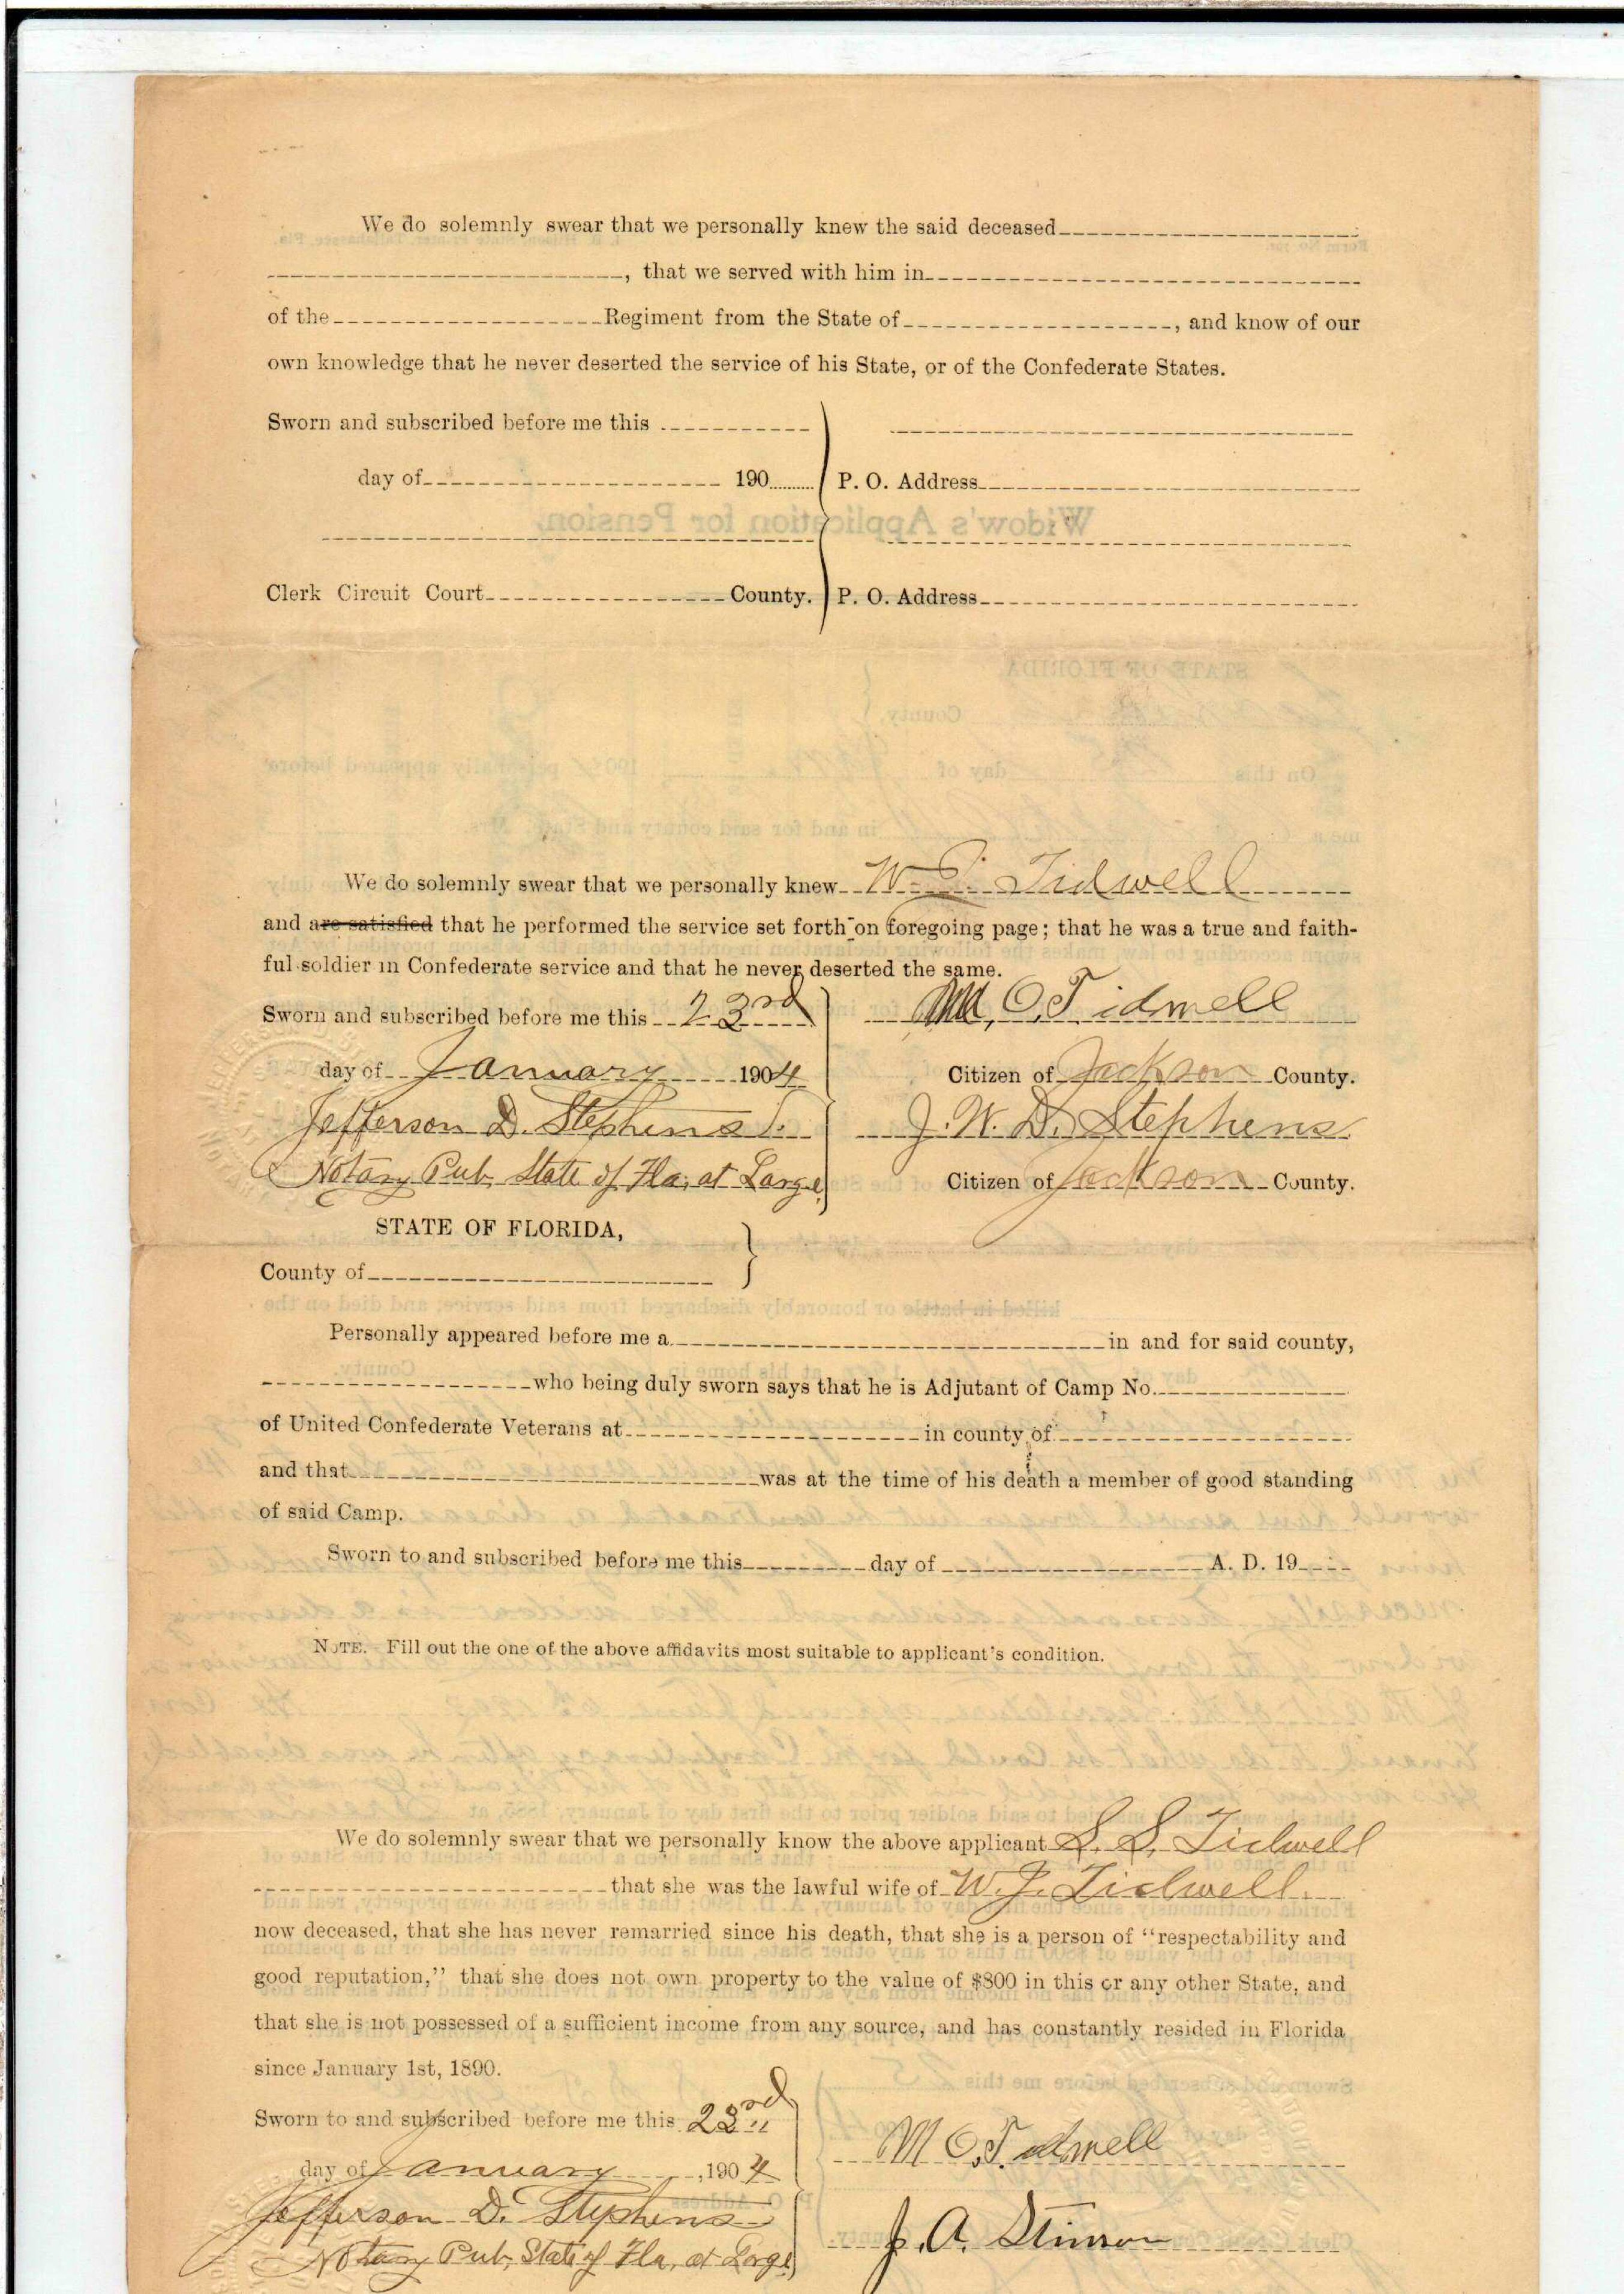 We do solemnly swear that we personally knew the said deceased
, that we served with him in
of the Regiment from the State of , and know of our
own knowledge that he never deserted the service of his State, or of the Confederate States.
Sworn and subscribed before me this
day of 190 P. O. Address
Widow's Application for Pension.
Clerk Circuit Court County. P. O. Address
STATE OF FLORIDA
County,
On this day of 190 personally appeared before
me a in and for said county and State, Mrs.
We do solemnly swear that we personally knew W. J. Tidwell
and are satisfied that he performed the service set forth on foregoing page; that he was a true and faith-
ful soldier in Confederate service and that he never deserted the same.
Sworn and subscribed before me this 23rd M. O. Tidwell
day of January 1904 Citizen of Jackson County.
Jefferson D. Stephens J. W. D. Stephens
Notary Pub, State of Fla, at Large Citizen of Jackson County.
STATE OF FLORIDA,
County of
killed in battle or honorably discharged from said service, and died on the
Personally appeared before me a in and for said county,
who being duly sworn says that he is Adjutant of Camp No.
of United Confederate Veterans at in county of
and that was at the time of his death a member of good standing
of said Camp.
Sworn to and subscribed before me this day of A. D. 19
NOTE. Fill out the one of the above affidavits most suitable to applicant's condition.
We do solemnly swear that we personally know the above applicant S. S. Tidwell
that she was the lawful wife of W. J. Tidwell.
now deceased, that she has never remarried since his death, that she is a person of "respectability and
good reputation," that she does not own property to the value of $800 in this or any other State, and
that she is not possessed of a sufficient income from any source, and has constantly resided in Florida
since January 1st, 1890.
Sworn to and subscribed before me this 23rd M O Tidwell
day of January , 1904
Jefferson D. Stephens J. A. Stinson
Notary Pub, State of Fla, at Large